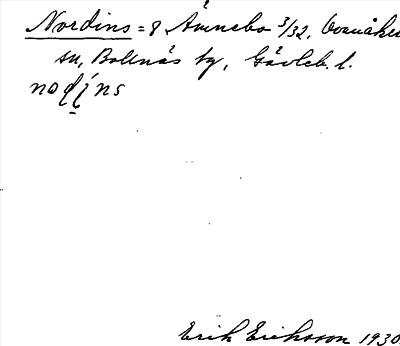 Nordins = 8 Åmnebo 3/32, Voxnåker
sn, Bollnäs tg, Gävleb. l.
Erik Eriksson 1930.